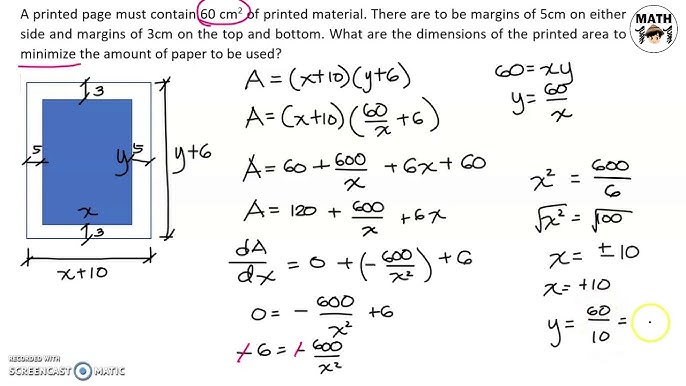 A printed page must contain 60 cm² of printed material. There are to be margins of 5cm on either
side and margins of 3cm on the top and bottom. What are the dimensions of the printed area to
minimize the amount of paper to be used?
MATH
3
5
y
5
y+6
x
3
x+10
A=(x+10)(y+6)
A=(x+10)(60/x +6)
A=60+600/x +6x+60
A=120+600/x +6x
dA/dx = 0 +(-600/x²)+6
0= -600/x² +6
-6=-600/x²
60=xy
y=60/x
x² = 600/6
√x² = √100
x= ±10
x=+10
y= 60/10 =
RECORDED WITH
SCREENCAST O MATIC